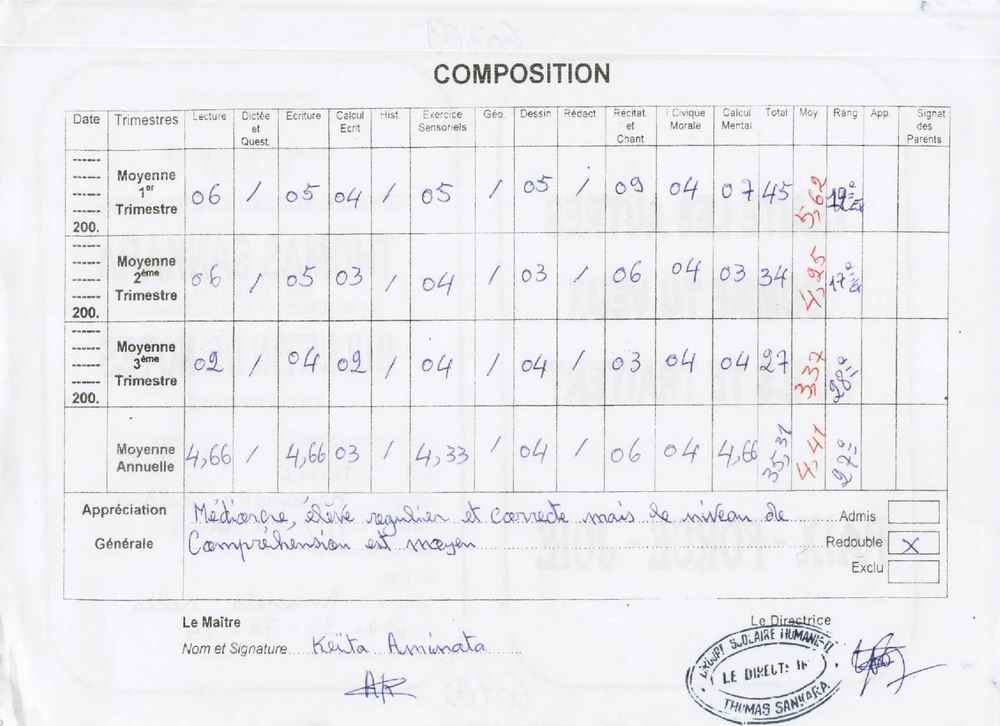 COMPOSITION
Date Trimestres Lecture Dictée et Quest. Ecriture Calcul Ecrit Hist. Exercice Sensoriels Géo. Dessin Rédact Récitat. et Chant I Civique Morale Calcul Mental Total Moy Rang App. Signat des Parents
Moyenne 1er Trimestre 200. 06 / 05 04 / 05 / 05 / 09 04 07 45 5,62
Moyenne 2ème Trimestre 200. 06 / 05 03 / 04 / 03 / 06 04 03 34 4,25 17è
Moyenne 3ème Trimestre 200. 02 / 04 02 / 04 / 04 / 03 04 04 27 3,37 28è
Moyenne Annuelle 4,66 / 4,66 03 / 4,33 / 04 / 06 04 4,66 35,31 4,41 27è
Appréciation Générale
Médiocre, élève regulier et correcte mais le niveau de
Compréhension est moyen
Admis
Redouble X
Exclu
Le Maître
Nom et Signature Keïta Aminata
Le Directrice
GROUPE SCOLAIRE HUMANE-II
LE DIRECTEUR
THOMAS SANKARA